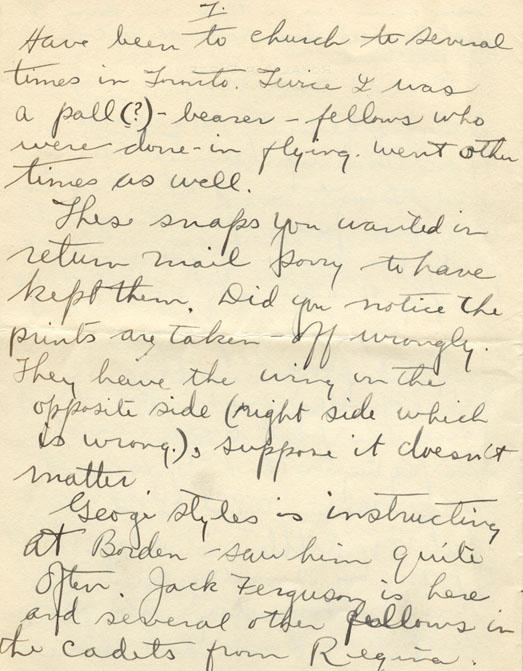 7.
Have been to church to several
times in Toronto. Twice I was
a pall(?)-bearer - fellows who
were done-in flying. went other
times as well.
These snaps you wanted in
return mail sorry to have
kept them. Did you notice the
prints are taken-off wrongly.
They have the wing on the
opposite side (right side which
is wrong.), suppose it doesn't
matter
Georgi Styles is instructing
at Borden - saw him quite
often. Jack Ferguson is here
and several other fellows in
the cadets from Regina.